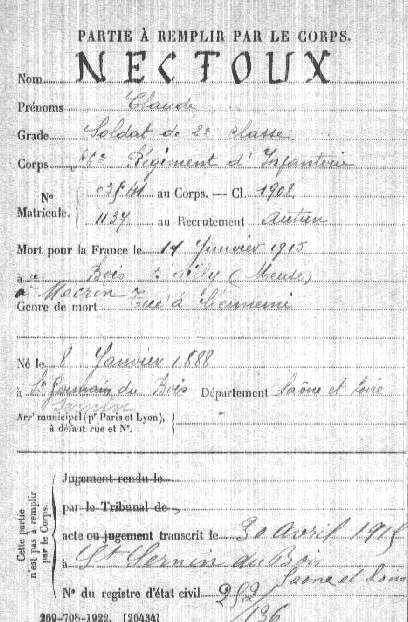 PARTIE À REMPLIR PAR LE CORPS.
Nom NECTOUX
Prénoms Claude
Grade Soldat de 2e classe
Corps Régiment d'Infanterie
No Matricule. au Corps. — Cl. 1908
1137 au Recrutement Autun
Mort pour la France le 14 Janvier 1915
à Bois (Meuse)
Genre de mort Tué à l'ennemi
Né le 8 Janvier 1888
à St du Bois Département Saône et Loire
Arrt municipal (pr Paris et Lyon), à défaut rue et No.
Cette partie n'est pas à remplir par le Corps.
Jugement rendu le
par le Tribunal de
acte ou jugement transcrit le 30 Avril 1915
à St Sernin du Bois
Saône et Loire
No du registre d'état civil 252/126
269-708-1922. [26434]